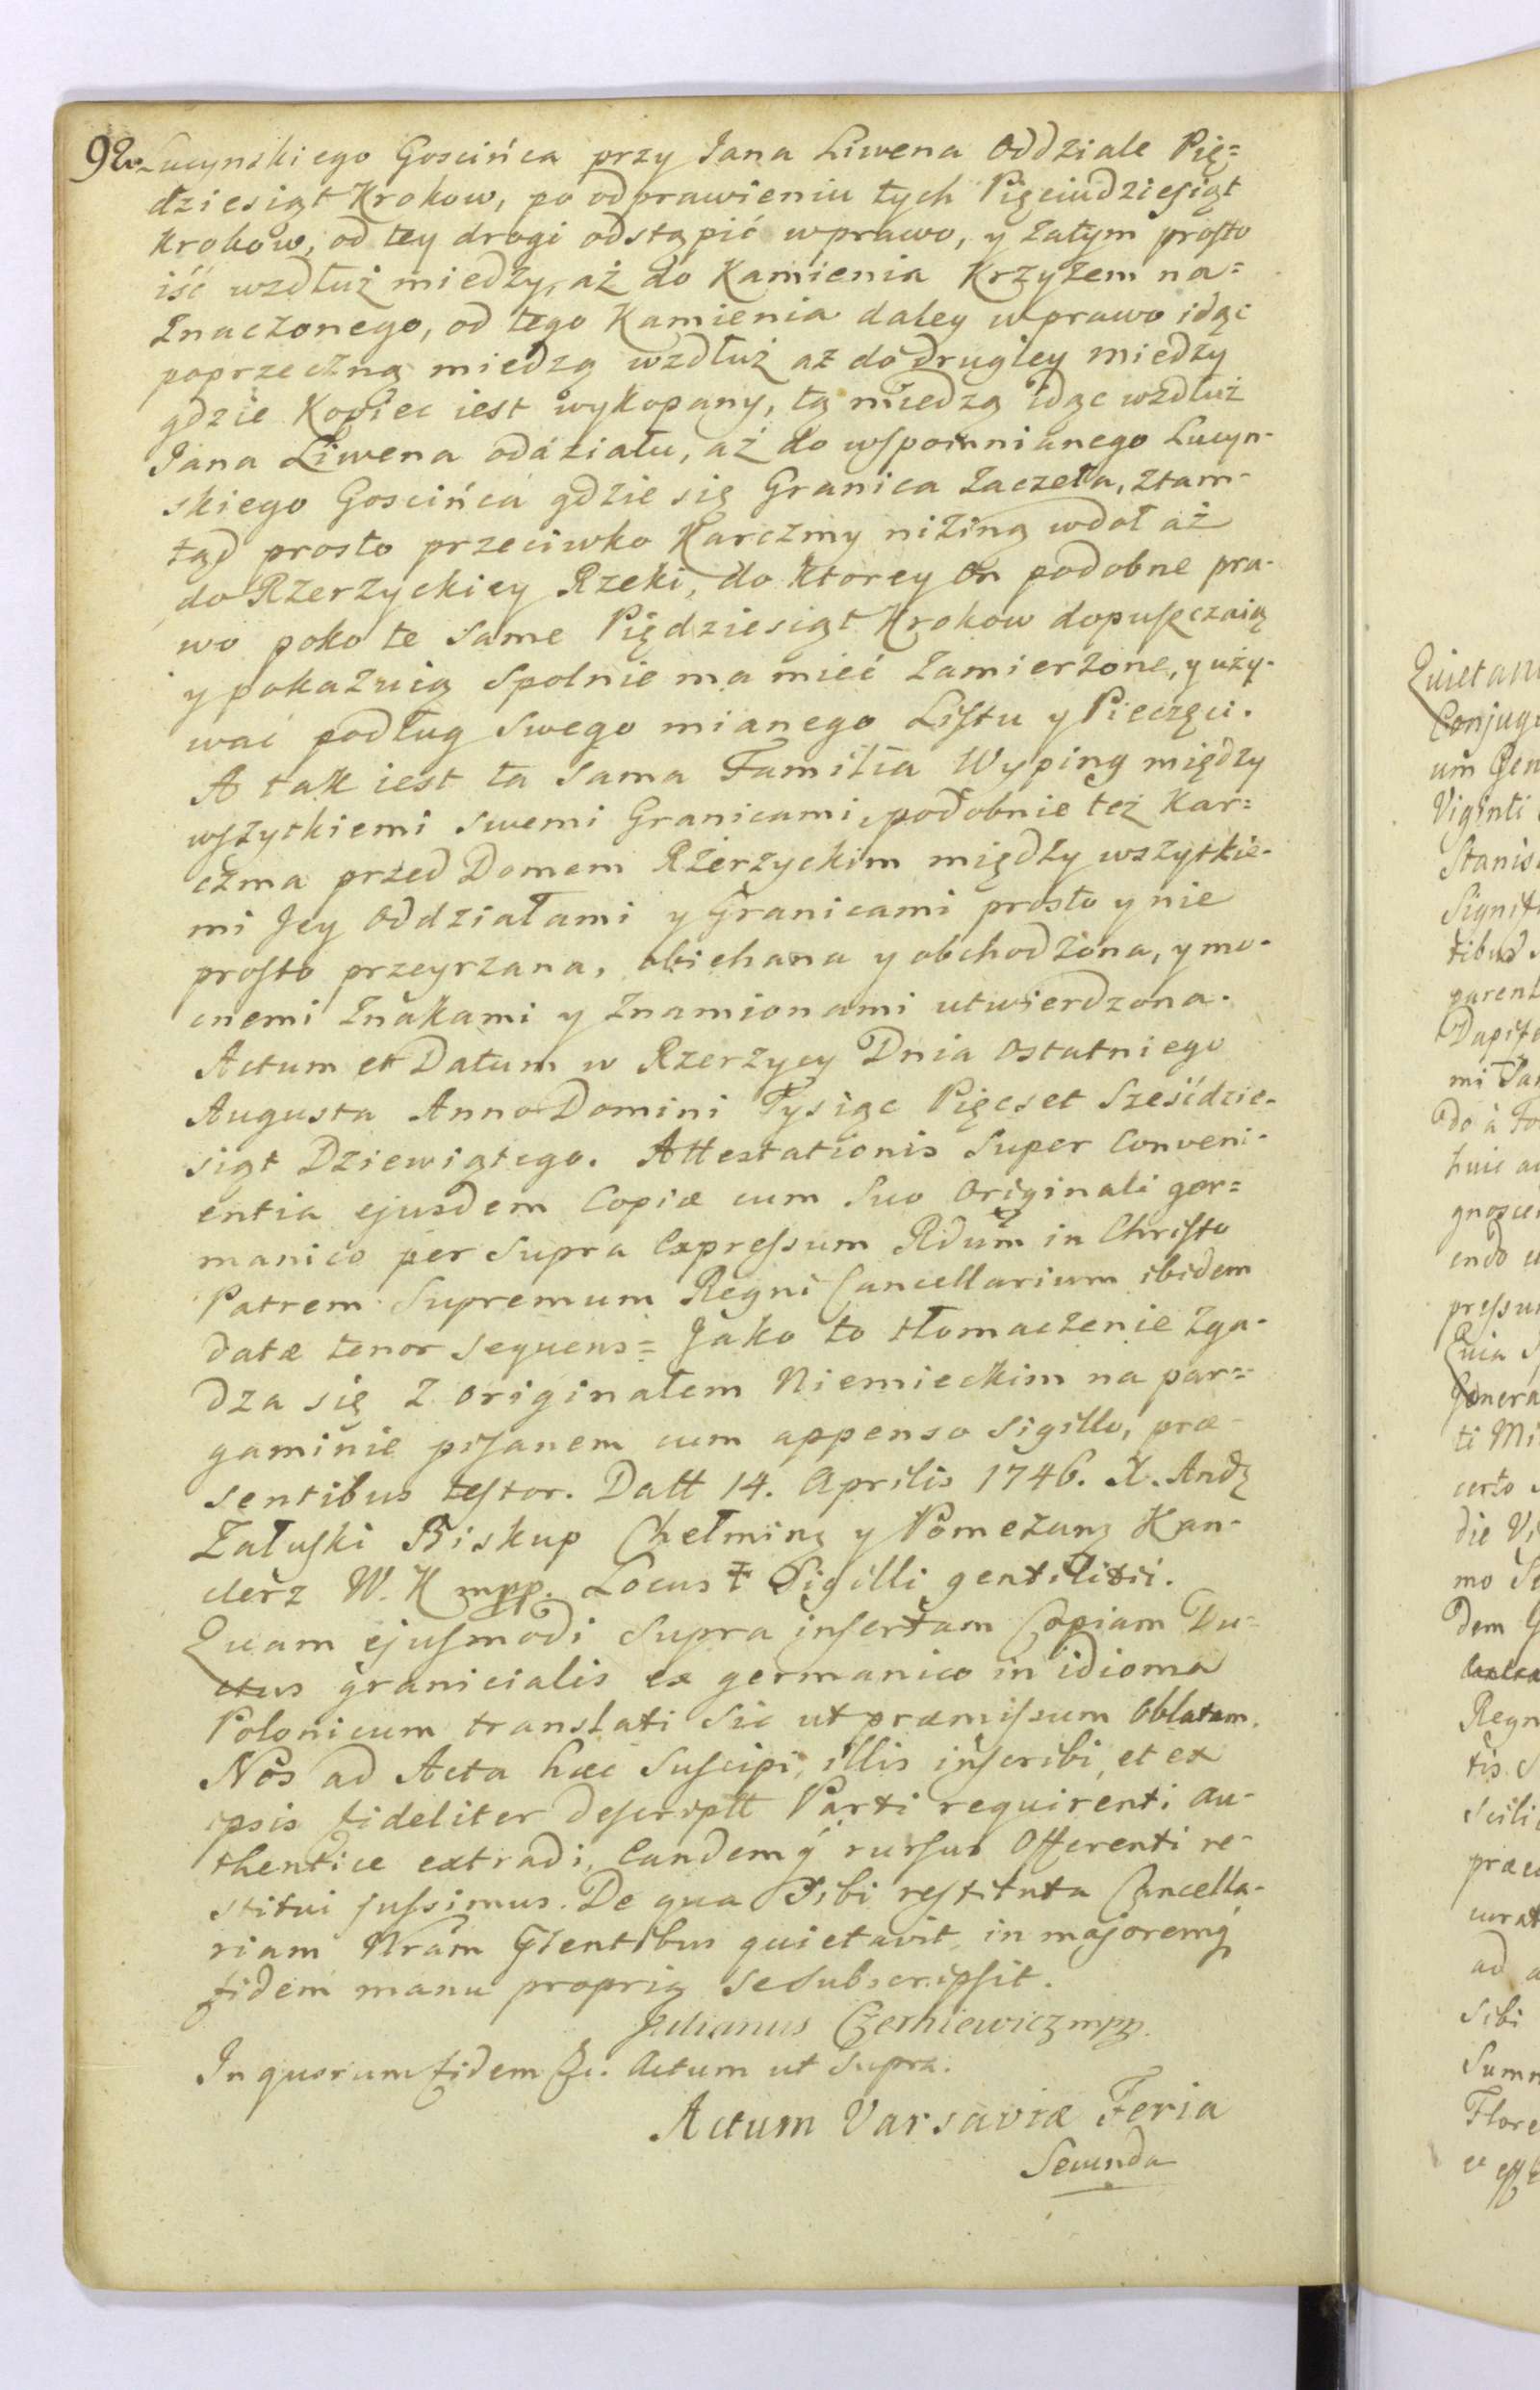 92. Lucynskiego Goscińca przy Jana Liwena Oddziale Pię=
dziesiąt Krokow, po odprawieniu tych Pięciudziesiąt
Krokow, od tey drogi odstąpić wprawo, y zatym prosto
iść wzdłuż miedzy, aż do Kamienia Krzyżem na=
znaczonego, od tego Kamienia daley wprawo idąc
poprzeczną miedzą wzdłuż aż do drugiey miedzy
gdzie Kopiec iest wykopany, tą miedzą idąc wzdłuż
Jana Liwena oddziału, aż do wspomnianego Lucyn-
skiego Goscińca gdzie się Granica zaczeła, ztam-
tąd prosto przeciwko Karczmy niziną wdoł aż
do Rzerzyckiey Rzeki, do Ktorey on podobne pra-
wo poko te same Piędziesiąt Krokow dopuszczaią
y pokazuią Spolnie ma mieć zamierzone, y uży-
wać podług Swego mianego Listu y Pieczęci.
A tak iest ta sama Familia Wyping między
wszytkiemi swemi Granicami, podobnie też Kar=
czma przed Domem Rzerzyckim między wszytkie-
mi Jey Oddziałami y Granicami prosto y nie
prosto przeyrzana, obiehana y obchodzona, y mo-
cnemi Znakami y Znamionami utwierdzona.
Actum et Datum w Rzerzycy Dnia Ostatniego
Augusta Anno Domini Tysiąc Pięcset Sześćdzie-
siąt Dziewiątego. Attestationis Super Conveni-
entia ejusdem Copiæ cum Suo Originali ger=
manico per Supra Expressum Rdum in Christo
Patrem Supremum Regni Cancellarium ibidem
datæ tenor Sequens = Jako to tłomaczenie zga-
dza się z originałem Niemieckim na par=
gaminie pisanem cum appenso Sigillo, præ-
sentibus testor. Datt 14. Aprilis 1746. X. Andz
Załuski Biskup Chełminz y Pomezanz Kan-
clerz W. K mpp. Locus ‡ Sigilli gentilitii.
Quam ejusmodi Supra insertam Copiam Du-
ctus granicialis ex germanico in idioma
Polonicum translati Sic ut præmissum Oblatam.
Nos ad Acta hæc Suscipi, illis inscribi, et ex
ipsis fideliter descriptt Parti requirenti au-
thentice extradi, Eandemq rursus Offerenti re-
stitui jussimus. De qua Sibi restituta Cancella-
riam Nram Gientibus quietavit, in majoremq
fidem manu propria se subscripsit.
Julianus Czerniewicz mpp.
In quorum fidem &c. Actum ut Supra.
Actum Varsaviæ Feria
Secunda
Conjug
um Gen
Viginti
Stanis
Signif
tibus
parent
Dapif
mi
do à
huic
gnosce
endo
pressu
Quia
Genera
ti
certo
die
mo
dem
Regn
tis
scili
præ
curat
ad
Sibi
Summ
Flore